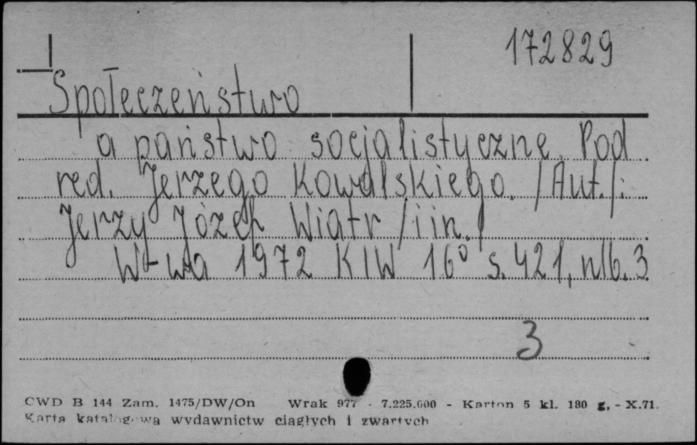 172829
Społeczeństwo
a państwo socjalistyczne. Pod
red. Jerzego Kowalskiego. /Aut./:
Jerzy Józef Wiatr /i in./
W-wa 1972 KIW 16° s. 421, nlb. 3
3
CWD B 144 Zam. 1475/DW/On Wrak 977 - 7.225.000 - Karton 5 kl. 180 g. - X.71.
Karta katalogowa wydawnictw ciągłych i zwartych